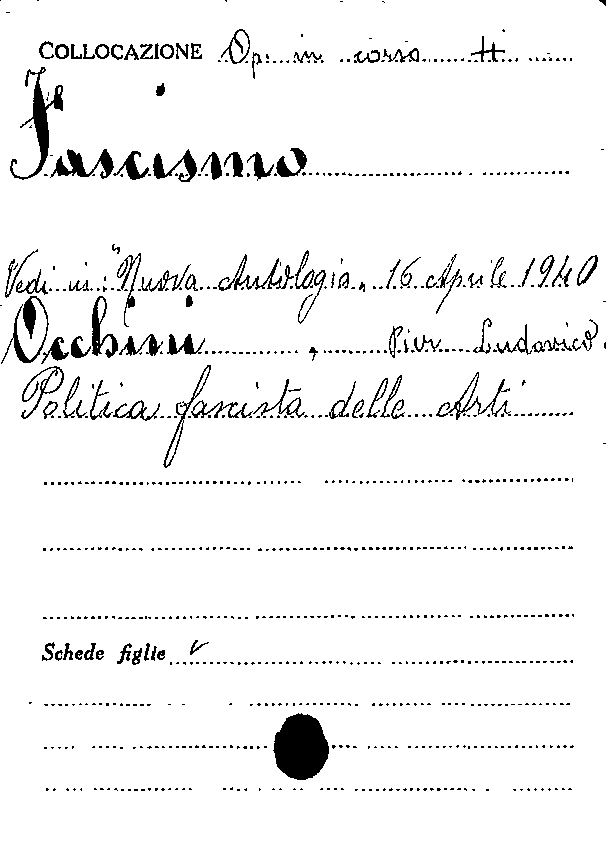 COLLOCAZIONE Op. in corso H
Fascismo
Vedi in: "Nuova Antologia" 16 Aprile 1940
Occhini, Pier Ludovico.
Politica fascista delle Arti
Schede figlie v